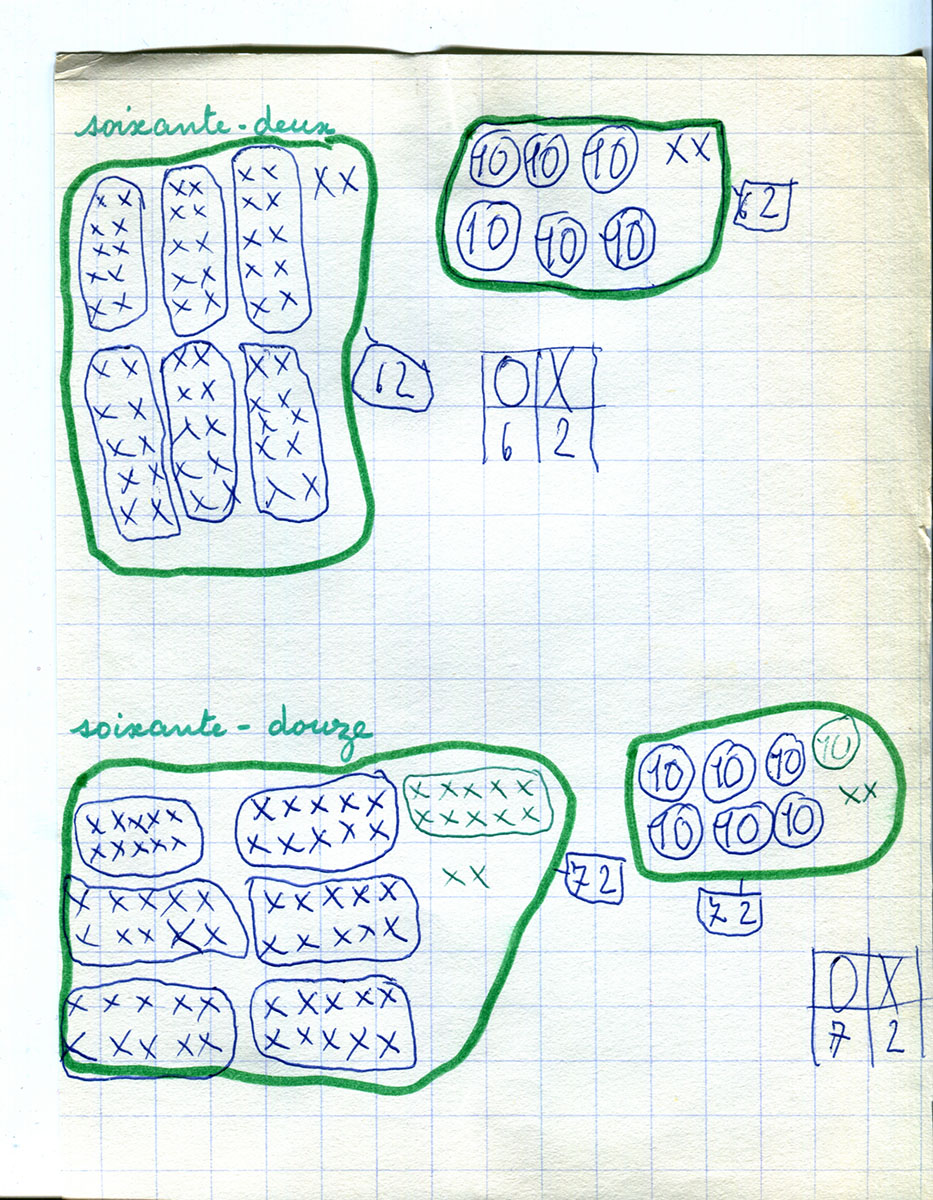 soixante-deux
10 10 10 XX
10 10 10
62
62
O X
6 2
soixante-douze
10 10 10 10
XX
10 10 10
72
72
O X
7 2